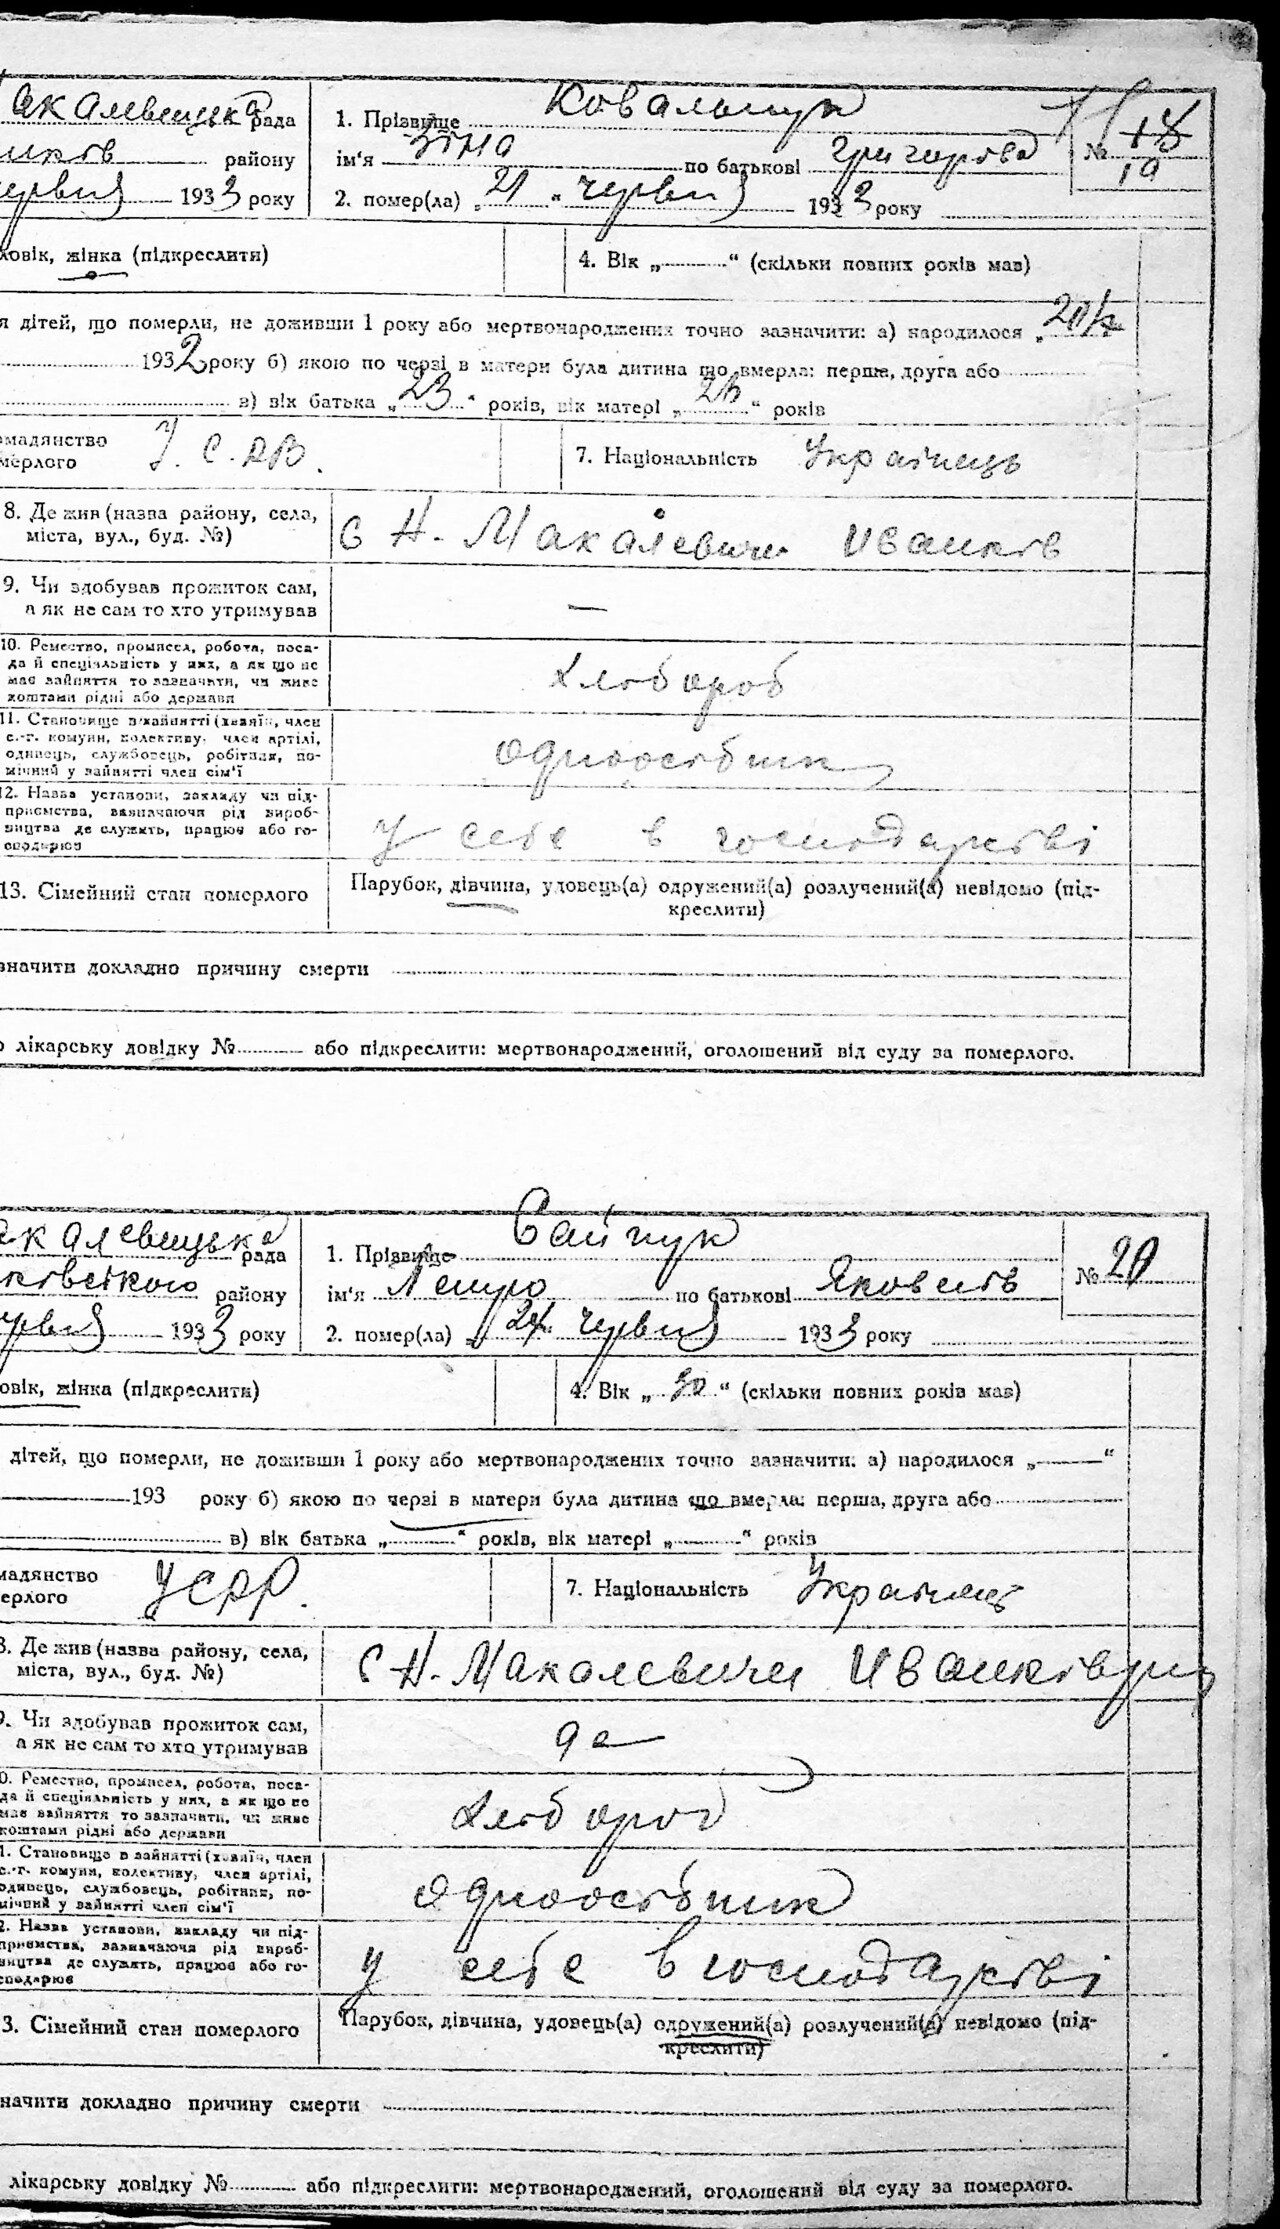 акалевицька рада
1. Прізвище Ковальчук
№ 18
19
иків району
ім'я Зіна по батькові Григорівна
червня 1933 року
2. помер(ла) „21“ червня 1933 року
ловік, жінка (підкреслити)
4. Вік „ “ (скільки повних років мав)
я дітей, що померли, не доживши 1 року або мертвонароджених точно зазначити: а) народилося „
1932 року б) якою по черзі в матери була дитина що вмерла: перша, друга або
в) вік батька „23“ років, вік матері „ “ років
омадянство
мерлого
7. Національність Українець
8. Де жив (назва району, села,
міста, вул., буд. №)
с Н. Макалевичи Иванків
9. Чи здобував прожиток сам,
а як не сам то хто утримував
—
10. Ремество, промисел, робота, поса-
да й спеціяльність у них, а як що не
має зайняття то зазначити, чи живе
коштами рідні або держави
Хлебороб
11. Становище в зайнятті (хазяїн, член
с.-г. комуни, колективу, член артілі,
одинець, службовець, робітник, по-
мічний у зайнятті член сім'ї
одноосібник
12. Назва установи, закладу чи під-
приємства, зазначаючи рід вироб-
ництва де служить, працює або го-
сподарює
У себе в господарстві
13. Сімейний стан померлого
Парубок, дівчина, удовець(а) одружений(а) розлучений(а) невідомо (під-
креслити)
значити докладно причину смерти
о лікарську довідку № або підкреслити: мертвонароджений, оголошений від суду за померлого.
ак алевицька рада
1. Прізвище Сайчук
№ 20
ківского району
ім'я Петро по батькові Яковлів
червня 1933 року
2. помер(ла) „24“ червня 1933 року
овік, жінка (підкреслити)
4. Вік „30“ (скільки повних років мав)
дітей, що померли, не доживши 1 року або мертвонароджених точно зазначити: а) народилося „ “
193 року б) якою по черзі в матери була дитина що вмерла: перша, друга або
в) вік батька „ “ років, вік матері „ “ років
мадянство
ерлого
УСРР.
7. Національність Українець
8. Де жив (назва району, села,
міста, вул., буд. №)
с Н. Макалевичи Иванків
9. Чи здобував прожиток сам,
а як не сам то хто утримував
да
0. Ремество, промисел, робота, поса-
да й спеціяльність у них, а як що не
має зайняття то зазначити, чи живе
коштами рідні або держави
Хлебороб
1. Становище в зайнятті (хазяїн, член
с.-г. комуни, колективу, член артілі,
одинець, службовець, робітник, по-
мічний у зайнятті член сім'ї
одноосібник
2. Назва установи, закладу чи під-
приємства, зазначаючи рід вироб-
ництва де служить, працює або го-
сподарює
У себе в господарстві
3. Сімейний стан померлого
Парубок, дівчина, удовець(а) одружений(а) розлучений(а) невідомо (під-
креслити)
начити докладно причину смерти
лікарську довідку № або підкреслити: мертвонароджений, оголошений від суду за померлого.